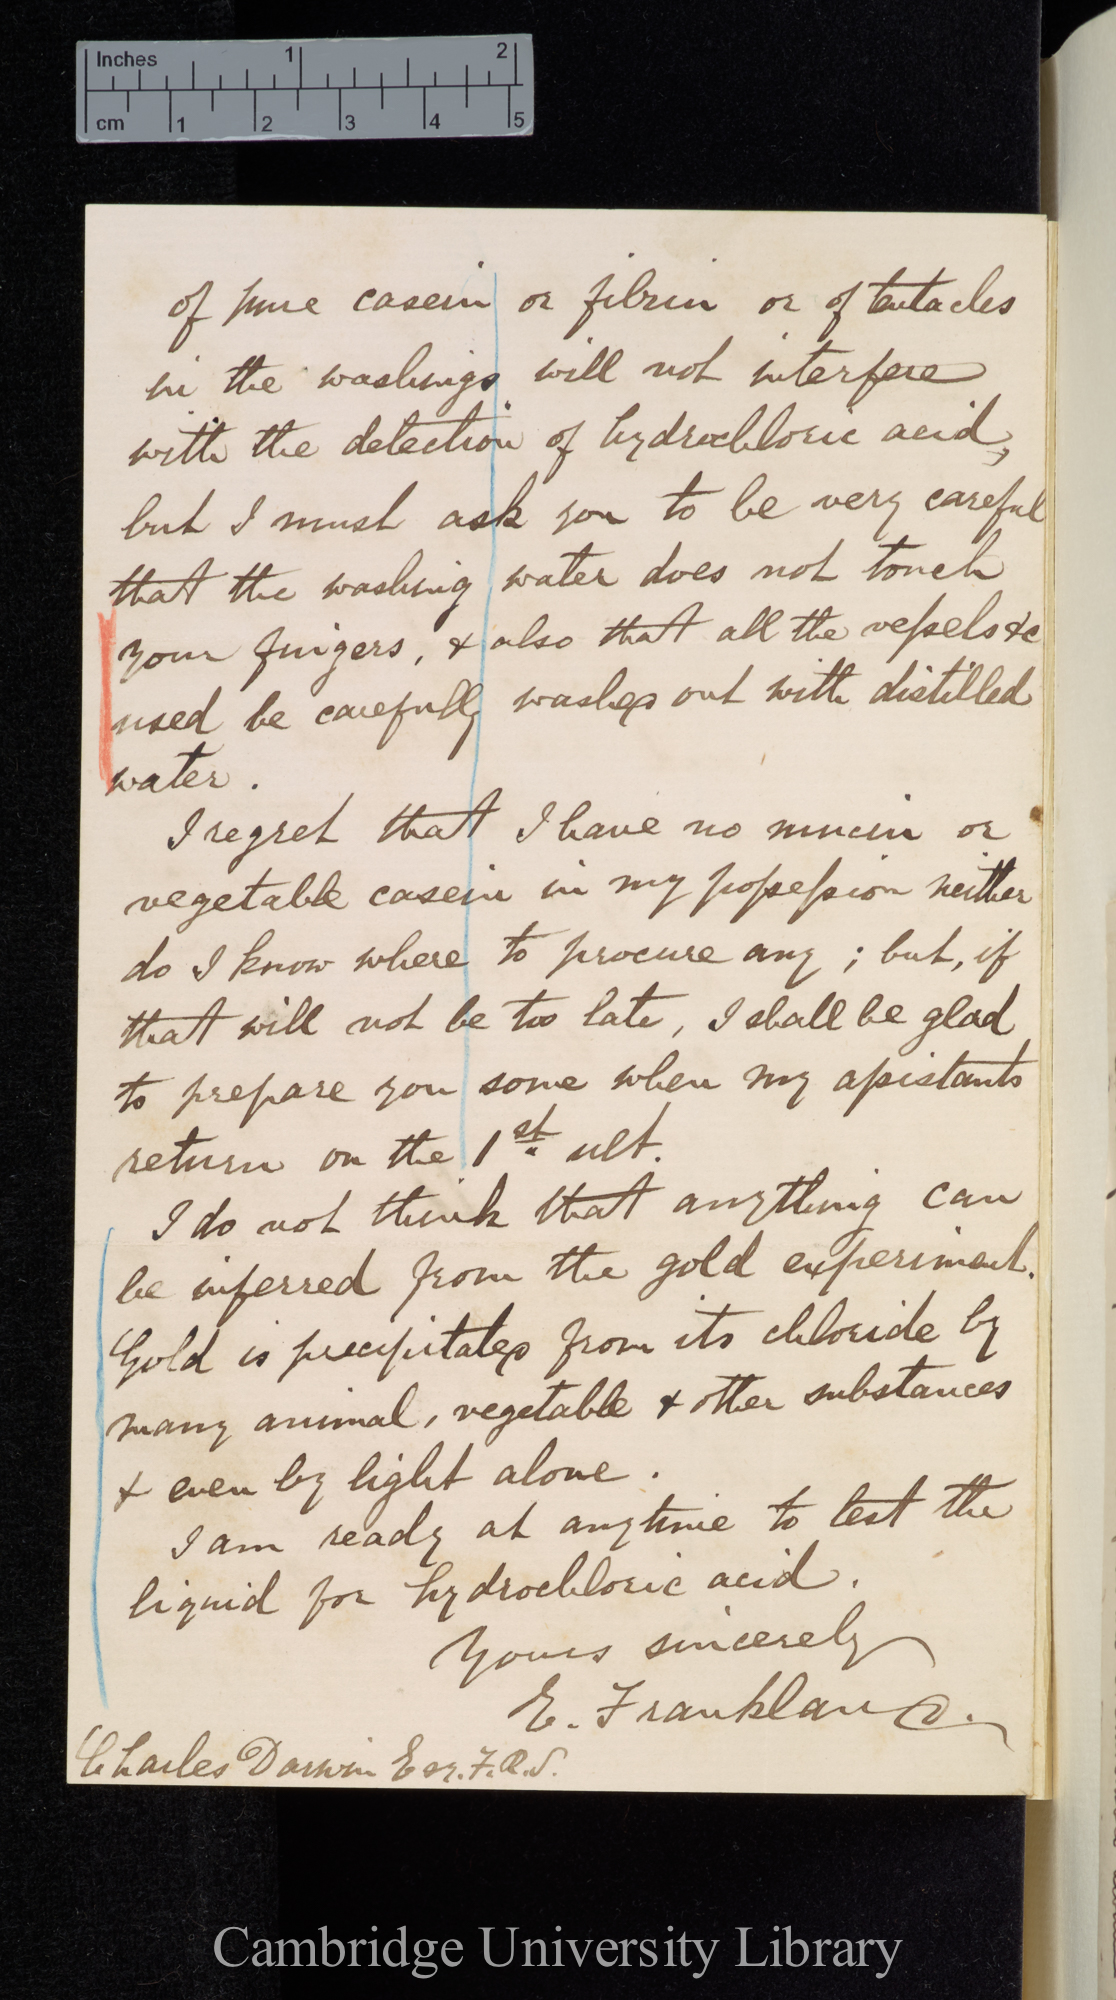 Inches 1 2
cm 1 2 3 4 5
of pure casein or fibrin or of tentacles
in the washings will not interfere
with the detection of hydrochloric acid,
but I must ask you to be very careful
that the washing water does not touch
your fingers, & also that all the vessels &c
used be carefully washed out with distilled
water.
I regret that I have no mucin or
vegetable casein in my possession neither
do I know where to procure any; but, if
that will not be too late, I shall be glad
to prepare you some when my assistants
return on the 1st. ult.
I do not think that anything can
be inferred from the gold experiment.
Gold is precipitated from its chloride by
many animal, vegetable & other substances
& even by light alone.
I am ready at anytime to test the
liquid for hydrochloric acid.
Yours sincerely
E. Frankland.
Charles Darwin Esq. F.R.S.
Cambridge University Library